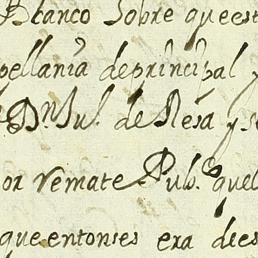 Blanco Sobre queest
pellania deprinçipal y
Dn Ju.l de Mesa y s
or remate Pub.co quel
queentonses era dies